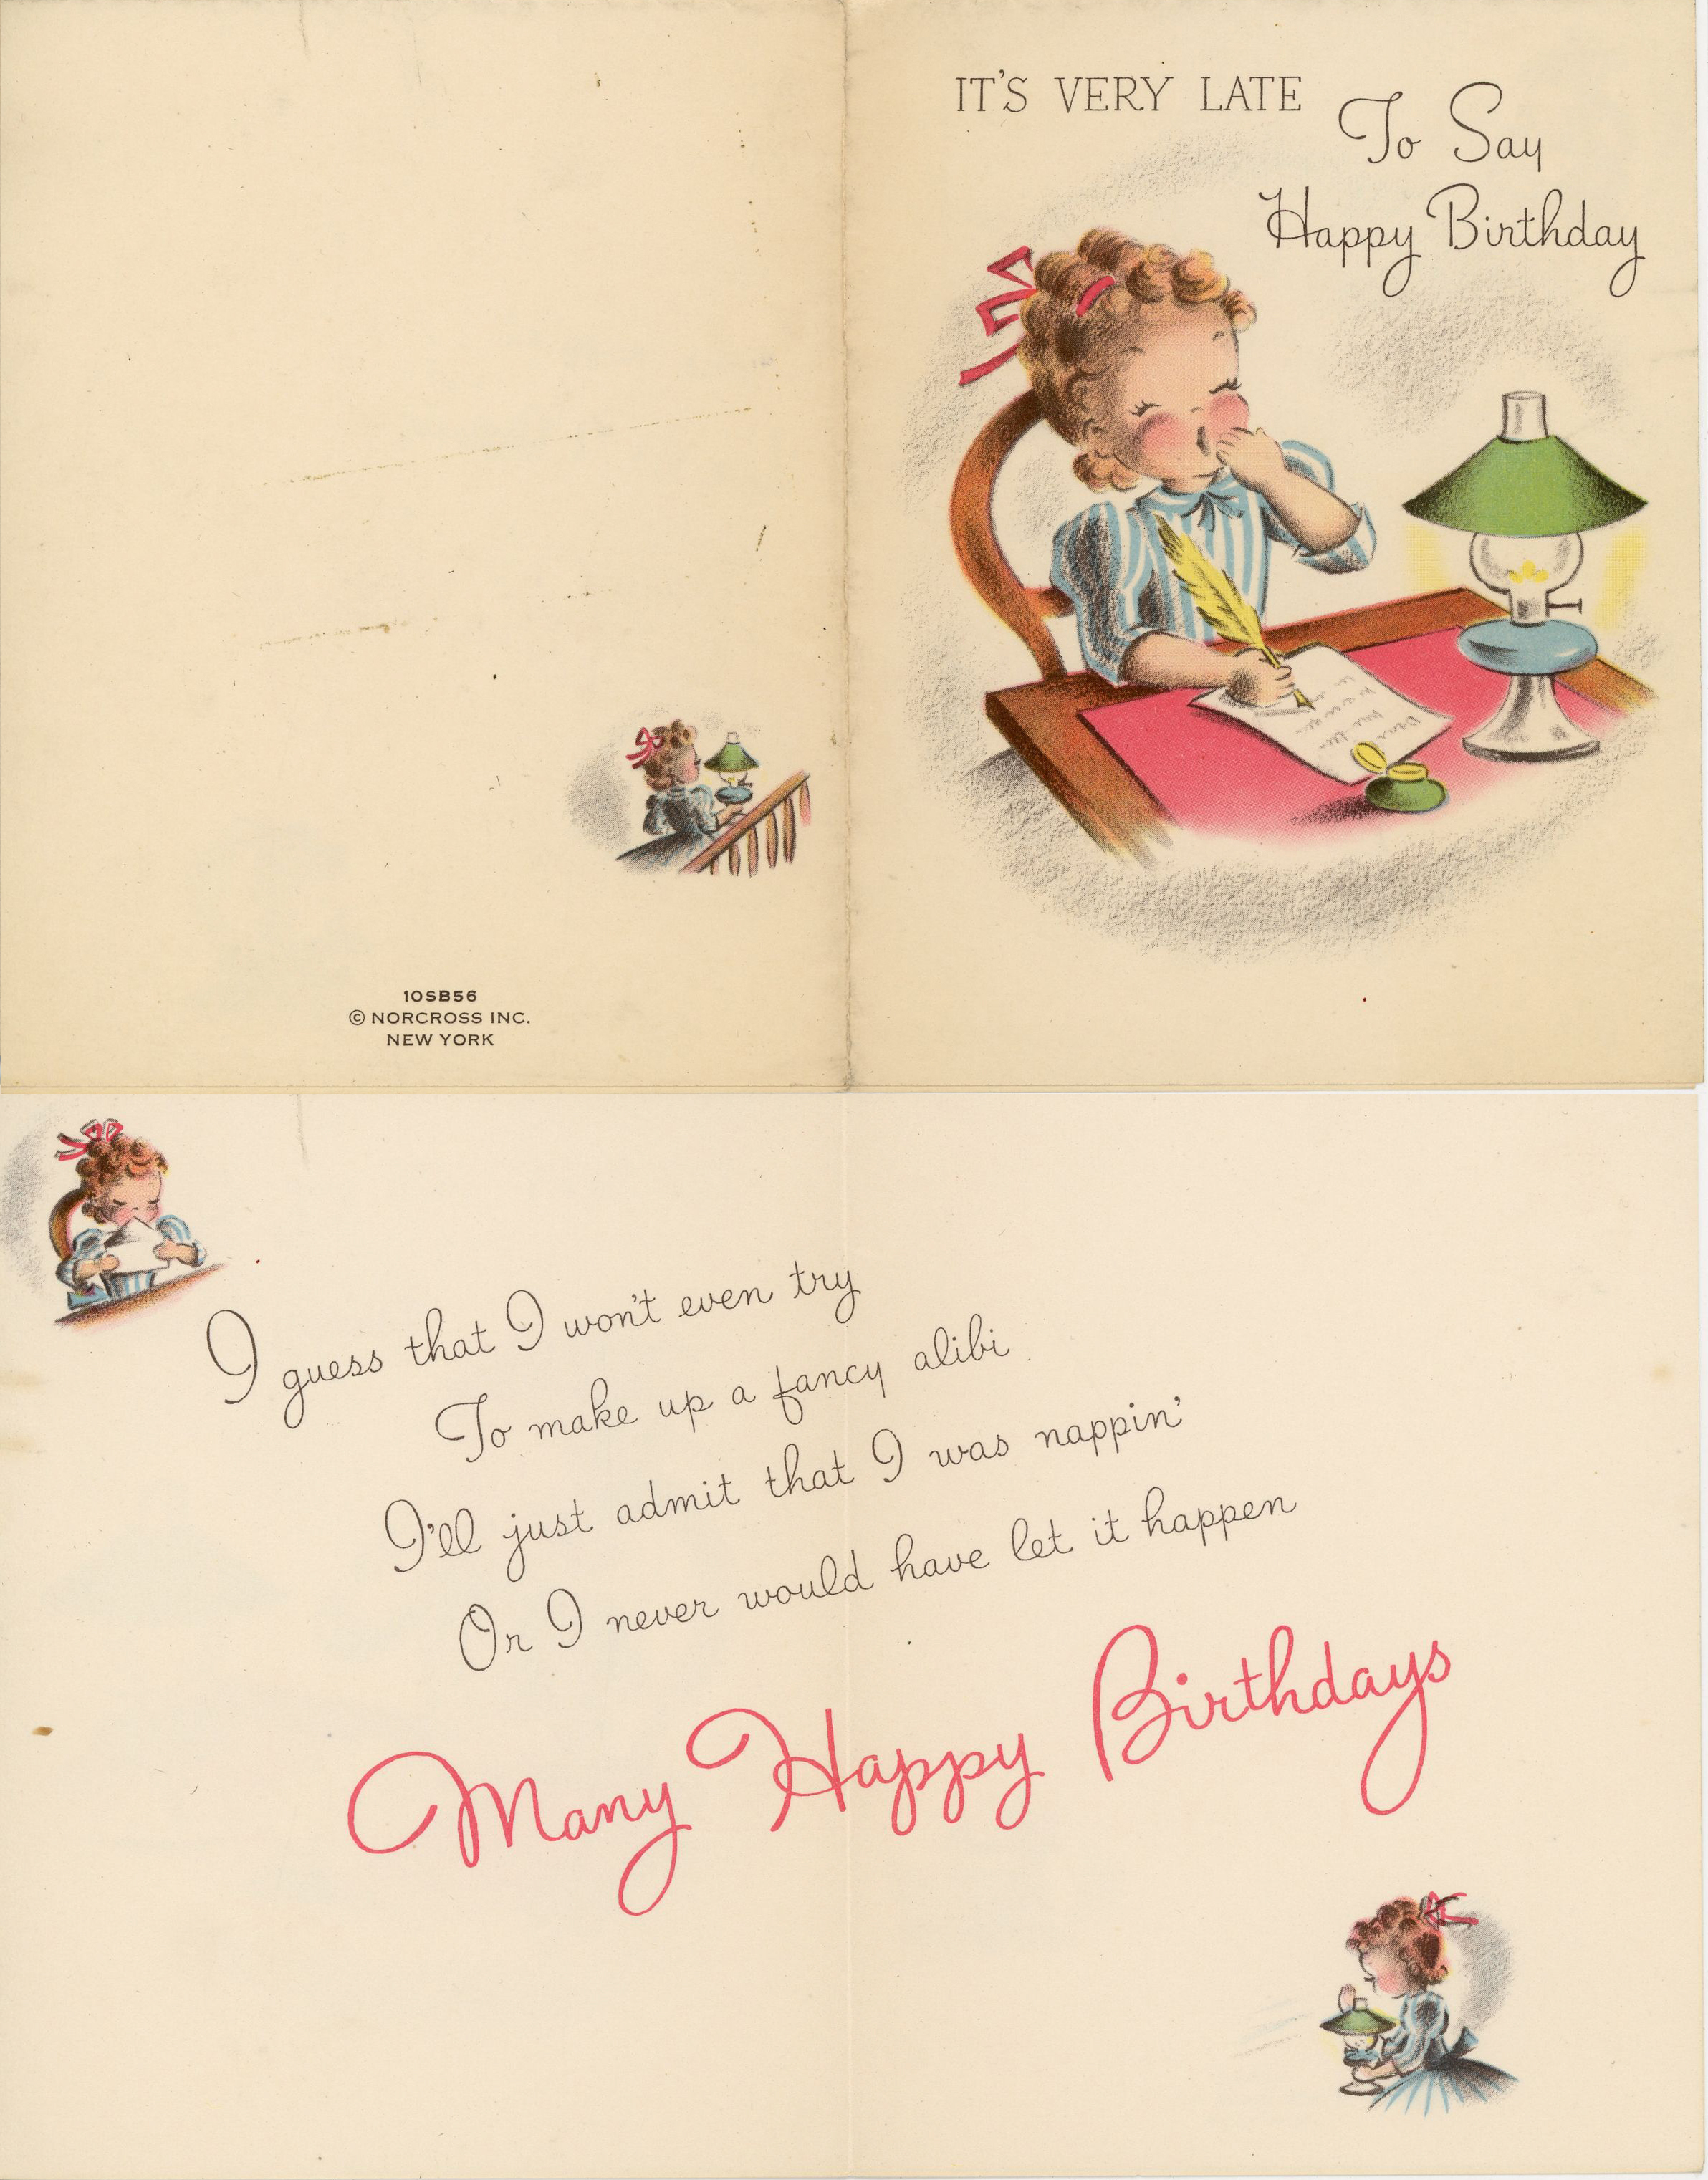 IT'S VERY LATE
To Say
Happy Birthday
10SB56
© NORCROSS INC.
NEW YORK
I guess that I won't even try
To make up a fancy alibi
I'll just admit that I was nappin'
Or I never would have let it happen
Many Happy Birthdays